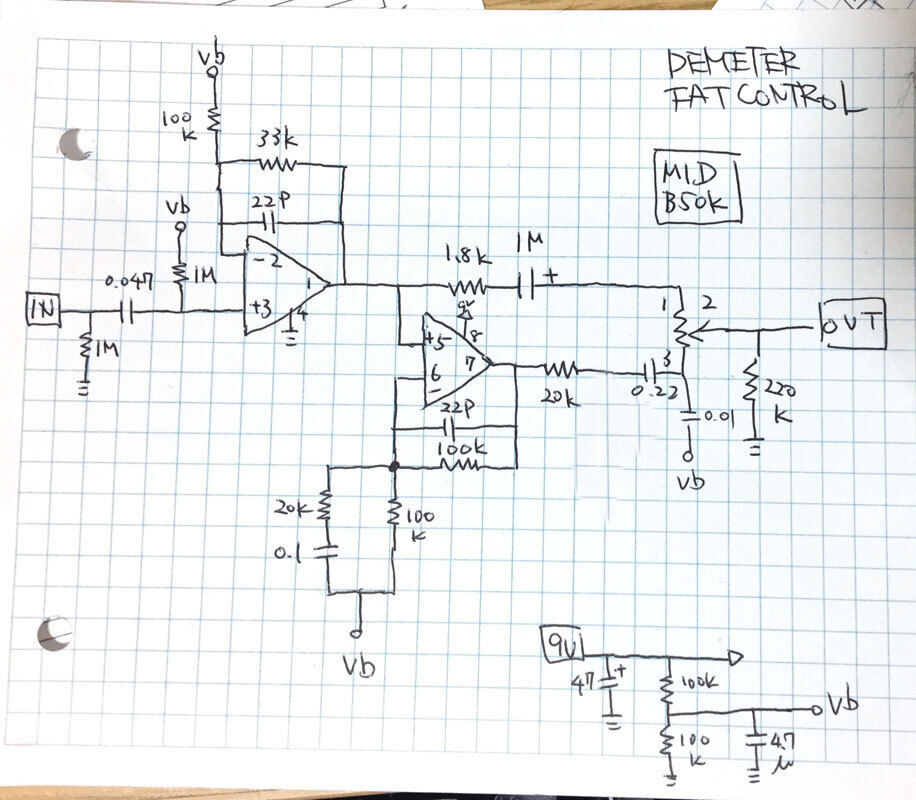 DEMETER
FAT CONTROL
MID
B50K
Vb
100
K
33K
22P
Vb
1M
0.047
IN
1M
-2
+3
1
4
1.8K
1M
+
9V
8
+5
6
-
7
1
2
3
OUT
20K
0.22
0.01
Vb
220
K
22P
100K
20K
0.1
100
K
Vb
9V
47
+
100K
Vb
100
K
4.7
μ